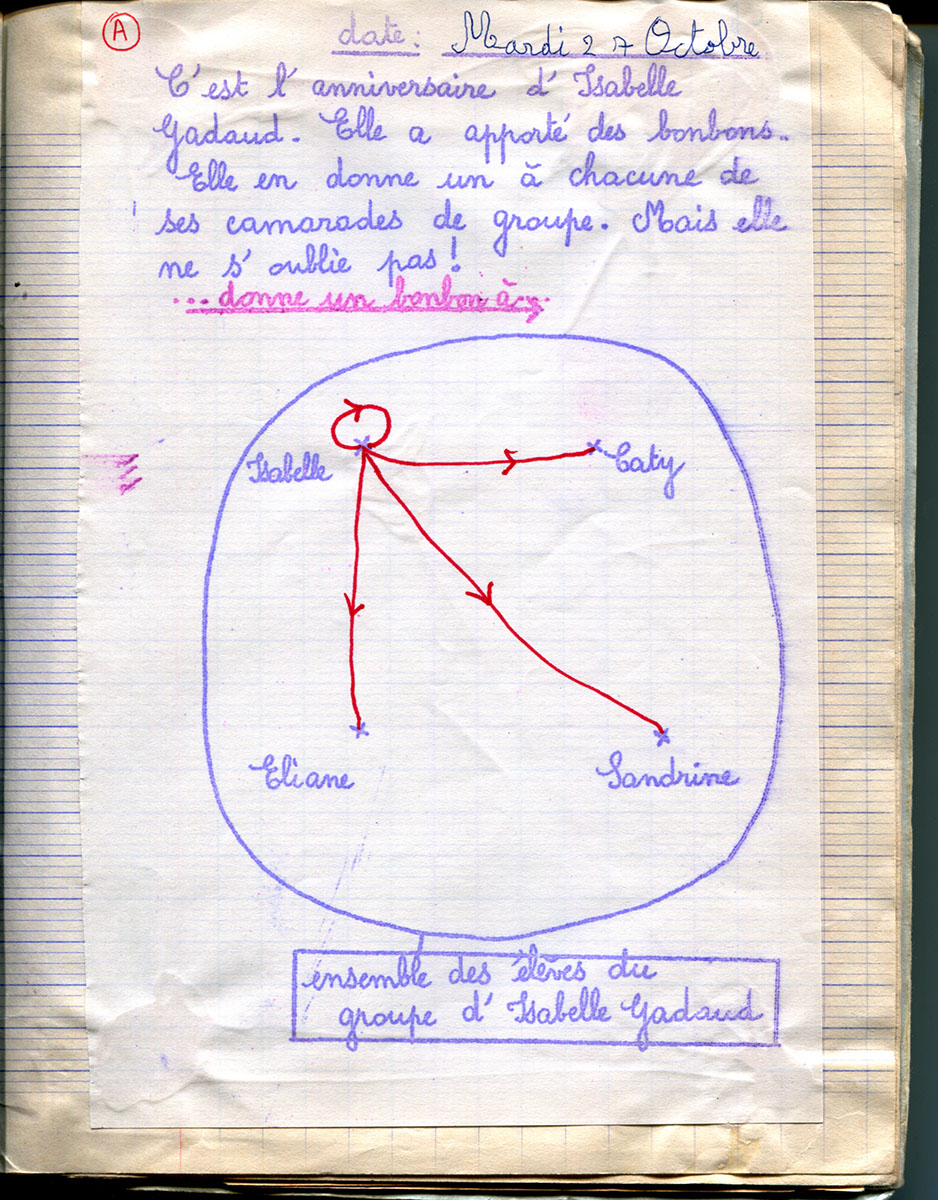 A
date: Mardi 27 Octobre
C'est l'anniversaire d'Isabelle
Gadaud. Elle a apporté des bonbons..
Elle en donne un à chacune de
ses camarades de groupe. Mais elle
ne s'oublie pas!
...donne un bonbon à...
Isabelle
Caty
Eliane
Sandrine
ensemble des élèves du
groupe d'Isabelle Gadaud